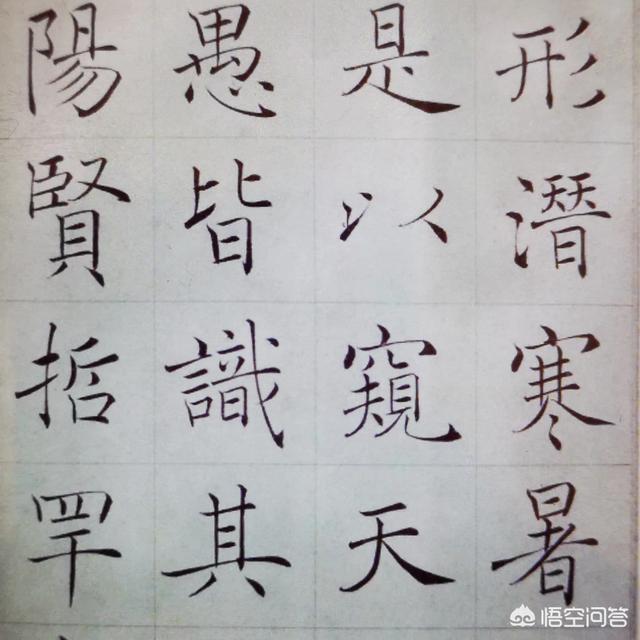 形潛寒暑
是以窺天
愚皆識其
陽賢哲罕
悟空问答